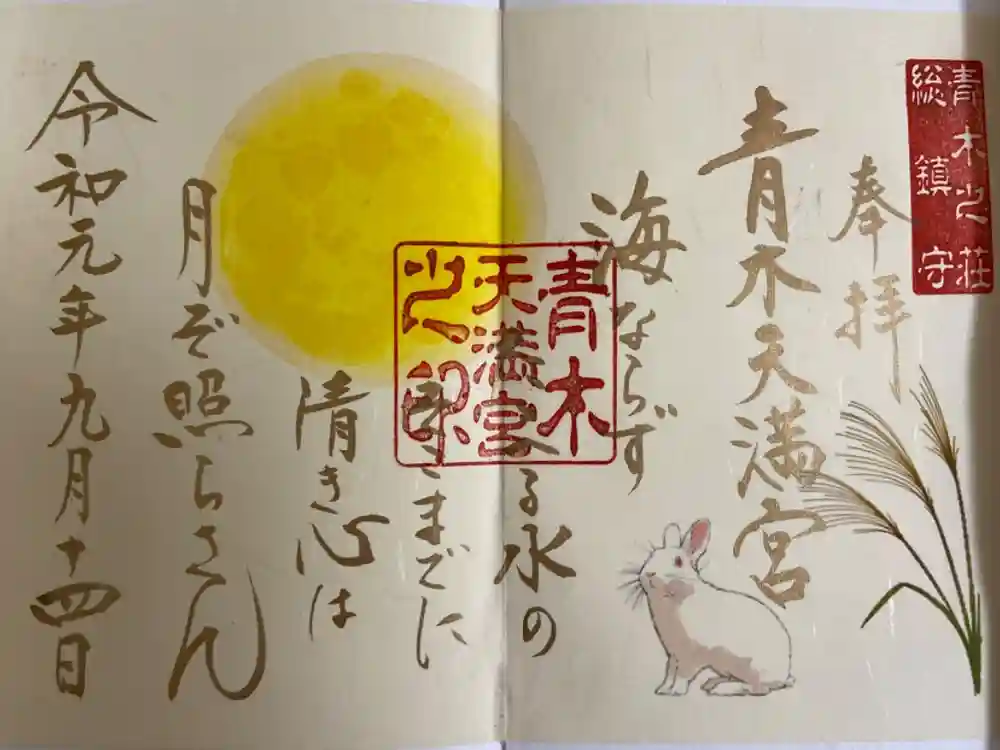 青木之荘
総鎮守
奉拝
青木天満宮
海ならず
へる水の
までに
清き心は
月ぞ照らさん
令和元年九月十四日
青木
天満宮
之印